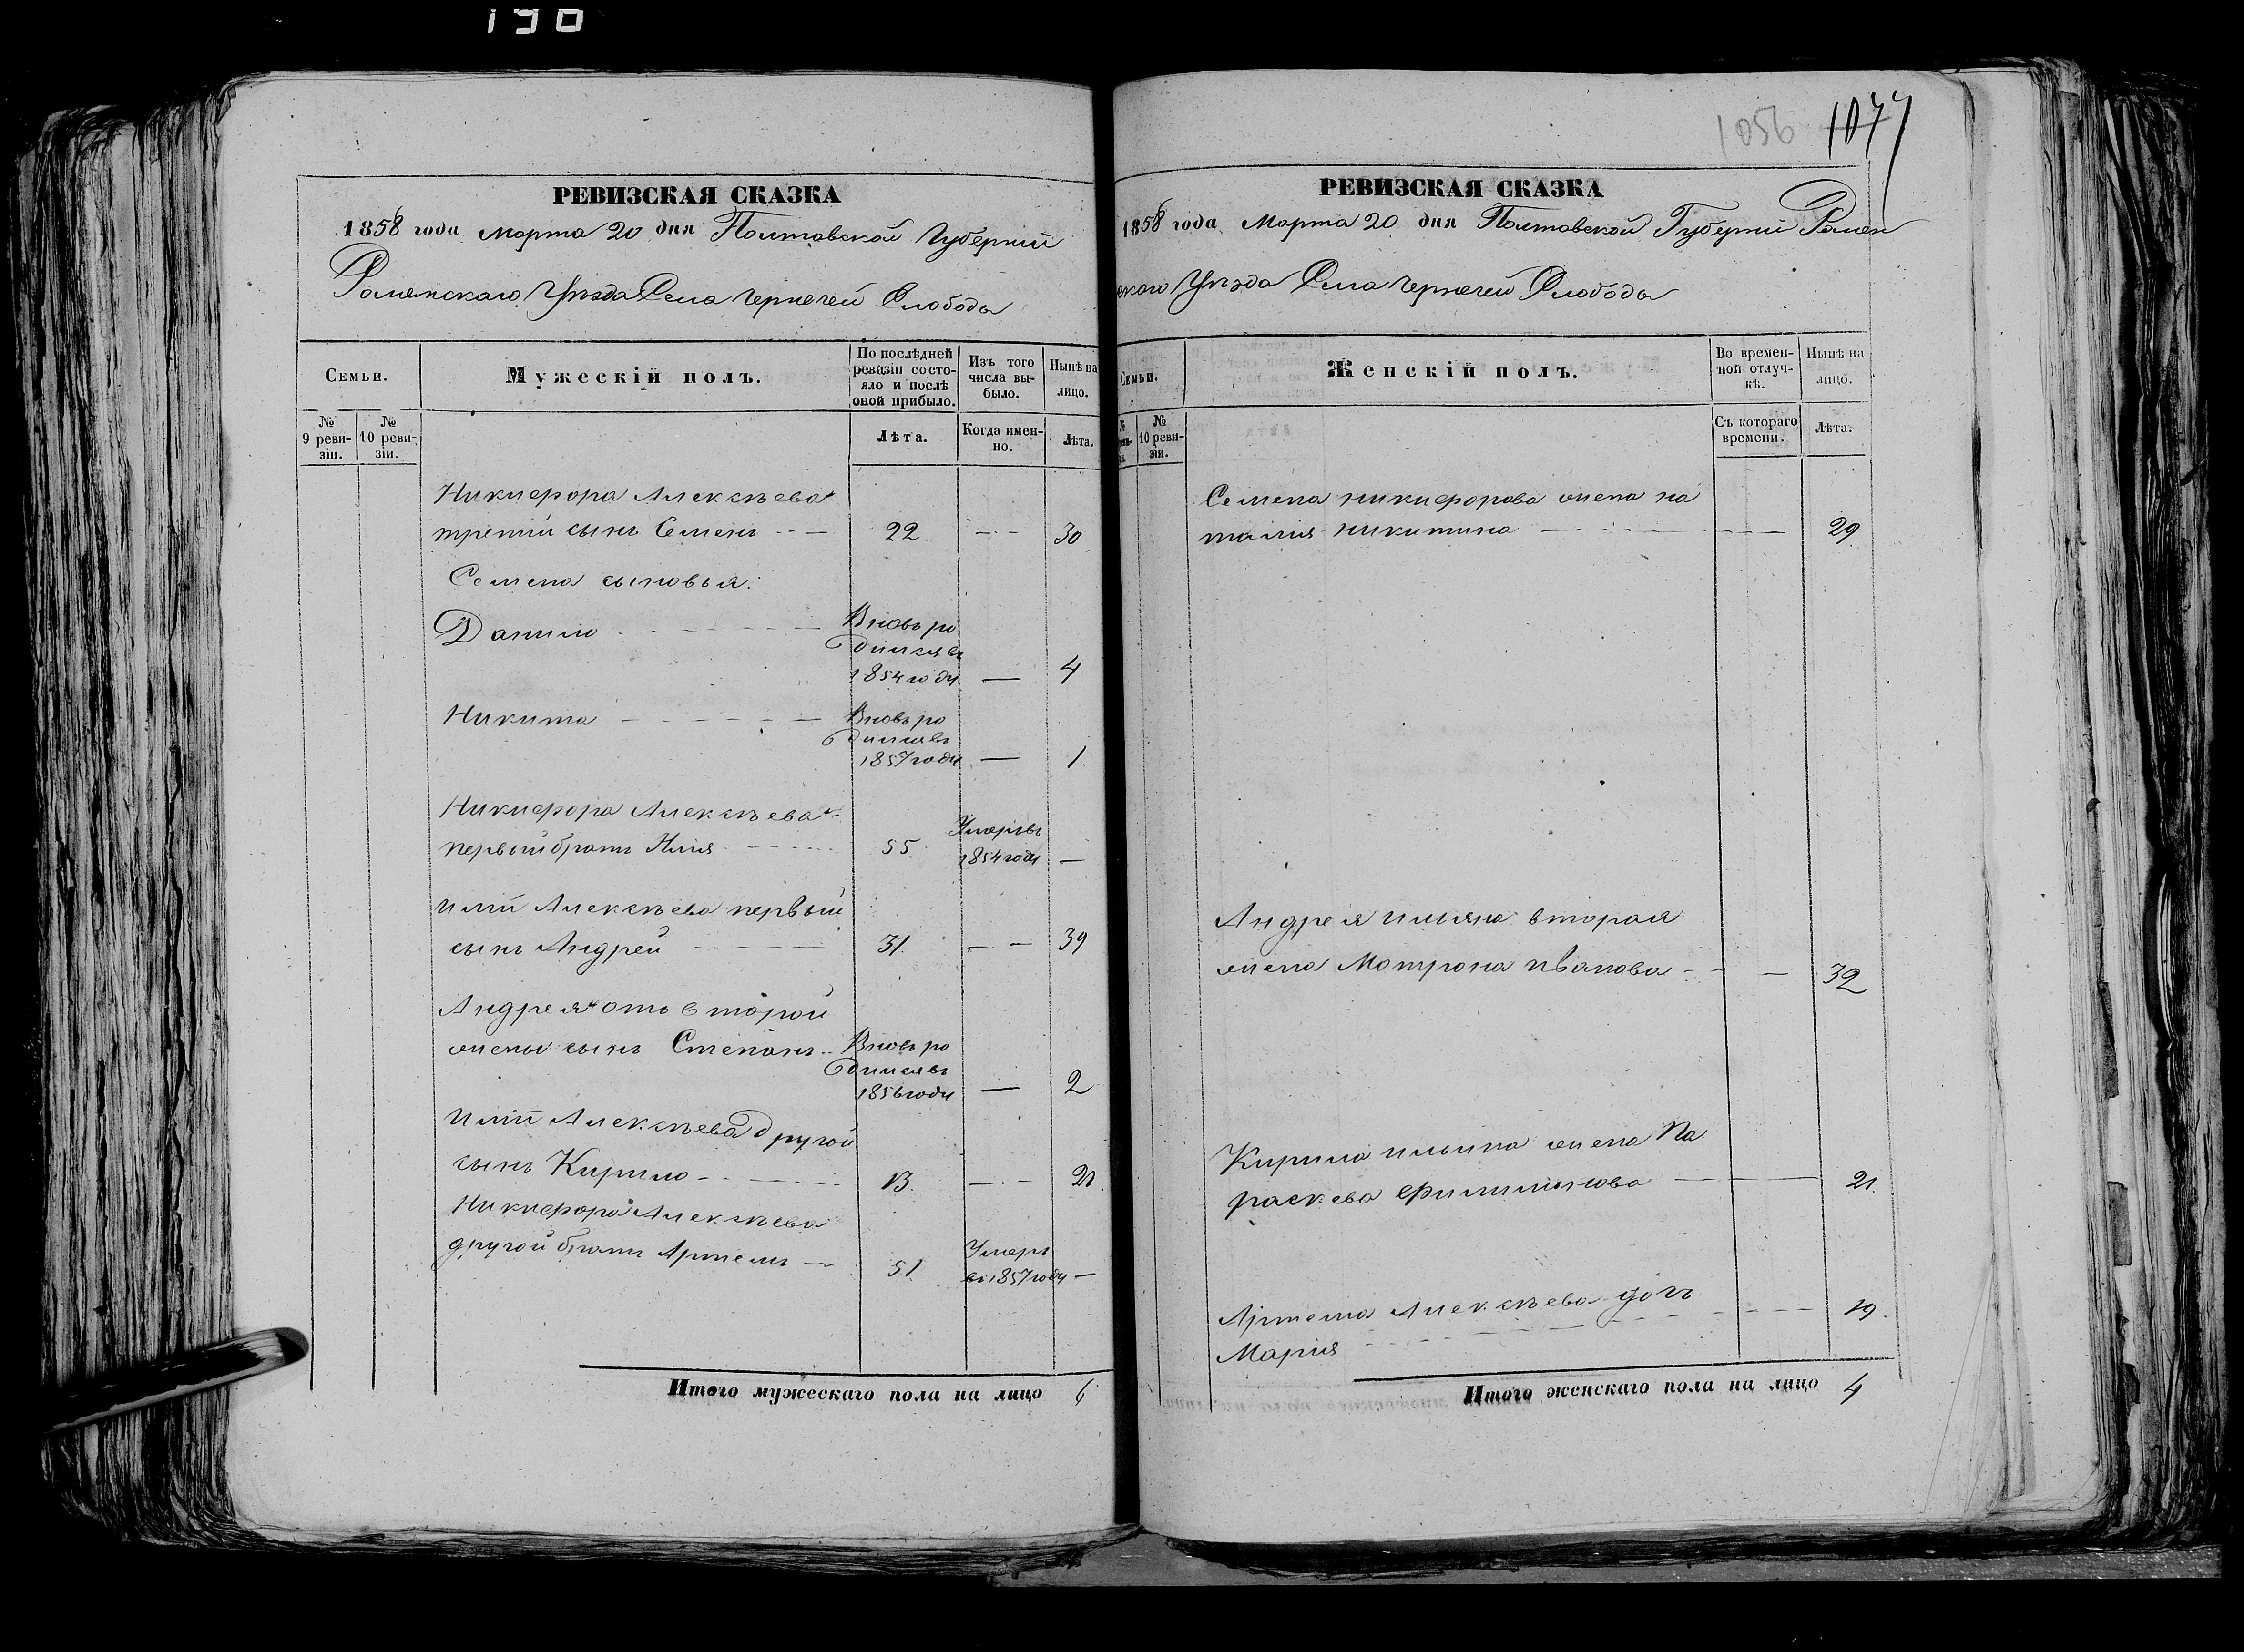 130
1056 1077
РЕВИЗСКАЯ СКАЗКА
1858 года Марта 20 дня Полтавской Губерніи
Роменскаго Уѣзда Села Чернечей Слободы
Семьи.
Мужескій полъ.
По послѣдней ревизіи состояло и послѣ оной прибыло.
Изъ того числа выбыло.
Нынѣ на лицо.
№ 9 ревизіи.
№ 10 ревизіи.
Лѣта.
Когда именно.
Лѣта.
Никифора Алексѣева
третій сынъ Семенъ 22 30
Семена сыновья:
Данило Вновь ро
дился въ
1854 году 4
Никита Вновь ро
дился въ
1857 году 1
Никифора Алексѣева
первый братъ Илія 55 Умеръ въ
1854 году
Иліи Алексѣева первый
сынъ Андрей 31 39
Андрея отъ второй
жены сынъ Степанъ Вновь ро
дился въ
1856 году 2
Иліи Алексѣева другой
сынъ Кирило 13 21
Никифора Алексѣева
другой братъ Артемъ 51 Умеръ
въ 1857 году
Итого мужескаго пола на лицо 6
РЕВИЗСКАЯ СКАЗКА
1858 года Марта 20 дня Полтавской Губерніи Ромен
скаго Уѣзда Села Чернечей Слободы
Семьи.
Женскій полъ.
Во временной отлучкѣ.
Нынѣ на лицо.
№ 10 ревизіи.
Съ котораго времени.
Лѣта.
Семена Никифорова жена На
талія Никитина 29
Андрея Ильина вторая
жена Мотрона Иванова 32
Кирила Ильина жена Па
раскева Филимонова 21
Артема Алексѣева дочь 19
Марія
Итого женскаго пола на лицо 4